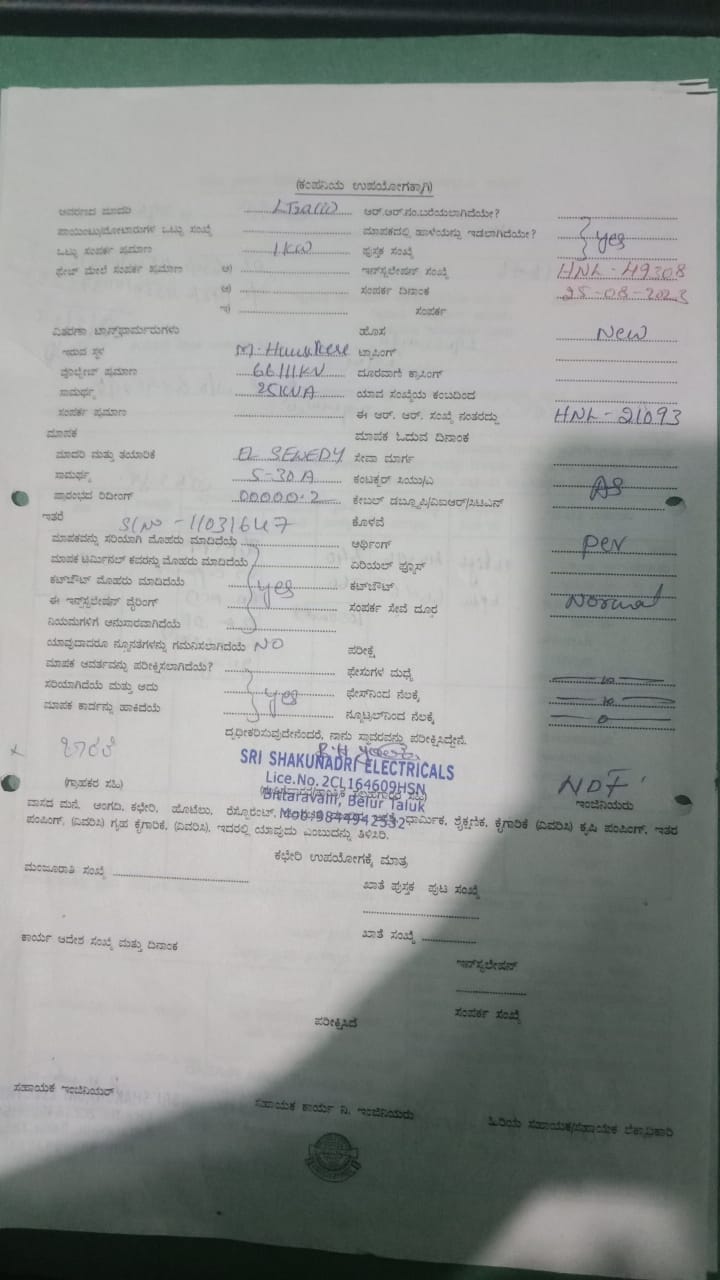 (ಕಂಪನಿಯ ಉಪಯೋಗಕ್ಕಾಗಿ)
ಆವರ್ತದ ಮಾದರಿ ಆರ್.ಆರ್.ನಂ.ಬರೆಯಲಾಗಿದೆಯೇ?
ಪಾಯಿಂಟು/ಮೋಟಾರುಗಳ ಒಟ್ಟು ಸಂಖ್ಯೆ ಮಾಪಕದಲ್ಲಿ ಹಾಳೆಯನ್ನು ಇಡಲಾಗಿದೆಯೇ? yes
ಒಟ್ಟು ಸಂಪರ್ಕ ಪ್ರಮಾಣ 1KW ಪುಸ್ತಕ ಸಂಖ್ಯೆ
ಫೇಟ್ ಮೇಲೆ ಸಂಪರ್ಕ ಪ್ರಮಾಣ ಅ) ಇನ್‌ಸ್ಟಲೇಷನ್ ಸಂಖ್ಯೆ HNL-49308
ಆ) ಸಂಪರ್ಕ ದಿನಾಂಕ 25-08-2023
ಇ) ಸಂಪರ್ಕ
ವಿತರಣಾ ಟ್ರಾನ್ಸ್‌ಫಾರ್ಮರುಗಳು ಹೊಸ New
ಇರುವ ಸ್ಥಳ ಟ್ಯಾಪಿಂಗ್
ವೋಲ್ಟೇಜ್ ಪ್ರಮಾಣ ದೂರವಾಣಿ ಕ್ರಾಸಿಂಗ್
ಸಾಮರ್ಥ್ಯ 25KVA ಯಾವ ಸಂಖ್ಯೆಯ ಕಂಬದಿಂದ
ಸಂಪರ್ಕ ಪ್ರಮಾಣ ಈ ಆರ್. ಆರ್. ಸಂಖ್ಯೆ ನಂತರದ್ದು HNL-21093
ಮಾಪಕ ಮಾಪಕ ಓದುವ ದಿನಾಂಕ
ಮಾದರಿ ಮತ್ತು ತಯಾರಿಕೆ ಸೇವಾ ಮಾರ್ಗ
ಸಾಮರ್ಥ್ಯ 5-30A ಕಂಟಕ್ಟರ್ ಸಿಯು/ಎ
ಪ್ರಾರಂಭದ ರಿಡೀಂಗ್ 00000.2 ಕೇಬಲ್ ಡಬ್ಲ್ಯೂಪಿ/ಐಐಆರ್/ಸಿಟಿಎನ್ AS
ಇತರೆ Sl No - 11031647 ಕೊಳವೆ
ಮಾಪಕವನ್ನು ಸರಿಯಾಗಿ ಮೊಹರು ಮಾಡಿದೆಯೆ ಆರ್ಥಿಂಗ್
ಮಾಪಕ ಟರ್ಮಿನಲ್ ಕವರನ್ನು ಮೊಹರು ಮಾಡಿದೆಯೆ ಏರಿಯಲ್ ಫ್ಯೂಸ್
ಕಟ್‌ಔಟ್ ಮೊಹರು ಮಾಡಿದೆಯೆ yes ಕಟ್‌ಔಟ್
ಈ ಇನ್‌ಸ್ಟಲೇಷನ್ ವೈರಿಂಗ್ ಸಂಪರ್ಕ ಸೇವೆ ದೂರ Normal
ನಿಯಮಗಳಿಗೆ ಅನುಸಾರವಾಗಿದೆಯೆ
ಯಾವುದಾದರೂ ನ್ಯೂನತೆಗಳನ್ನು ಗಮನಿಸಲಾಗಿದೆಯೆ NO ಪರೀಕ್ಷೆ
ಮಾಪಕ ಆವರ್ತವನ್ನು ಪರೀಕ್ಷಿಸಲಾಗಿದೆಯೆ? ಫೇಸುಗಳ ಮಧ್ಯೆ
ಸರಿಯಾಗಿದೆಯೆ ಮತ್ತು ಅದು yes ಫೇಸ್‌ನಿಂದ ನೆಲಕ್ಕೆ
ಮಾಪಕ ಕಾರ್ಡನ್ನು ಹಾಕಿದೆಯೆ ನ್ಯೂಟ್ರಲ್‌ನಿಂದ ನೆಲಕ್ಕೆ
ದೃಢೀಕರಿಸುವುದೇನೆಂದರೆ, ನಾನು ಸ್ಥಾವರವನ್ನು ಪರೀಕ್ಷಿಸಿದ್ದೇನೆ.
SRI SHAKUNADRI ELECTRICALS
Lice.No.2CL164609HSN
Bittaravalli, Belur Taluk
Mob:9844942532
(ಗ್ರಾಹಕರ ಸಹಿ) ಇಂಜಿನಿಯರು
ವಾಸದ ಮನೆ, ಅಂಗಡಿ, ಕಛೇರಿ, ಹೊಟೆಲು, ರೆಸ್ಟೋರೆಂಟ್, ಧಾರ್ಮಿಕ, ಶೈಕ್ಷಣಿಕ, ಕೈಗಾರಿಕೆ (ವಿವರಿಸಿ) ಕೃಷಿ ಪಂಪಿಂಗ್, ಇತರ
ಪಂಪಿಂಗ್, (ವಿವರಿಸಿ) ಗೃಹ ಕೈಗಾರಿಕೆ, (ವಿವರಿಸಿ), ಇದರಲ್ಲಿ ಯಾವುದು ಎಂಬುದನ್ನು ತಿಳಿಸಿರಿ.
ಕಛೇರಿ ಉಪಯೋಗಕ್ಕೆ ಮಾತ್ರ
ಮಂಜೂರಾತಿ ಸಂಖ್ಯೆ ಖಾತೆ ಪುಸ್ತಕ ಪುಟ ಸಂಖ್ಯೆ
ಕಾರ್ಯ ಆದೇಶ ಸಂಖ್ಯೆ ಮತ್ತು ದಿನಾಂಕ ಖಾತೆ ಸಂಖ್ಯೆ
ಇನ್‌ಸ್ಟಲೇಷನ್
ಸಂಪರ್ಕ ಸಂಖ್ಯೆ
ಪರೀಕ್ಷಿಸಿದೆ
ಸಹಾಯಕ ಇಂಜಿನಿಯರ್ ಸಹಾಯಕ ಕಾರ್ಯ ನಿ. ಇಂಜಿನಿಯರು ಹಿರಿಯ ಸಹಾಯಕ/ಸಹಾಯಕ ಲೆಕ್ಕಾಧಿಕಾರಿ